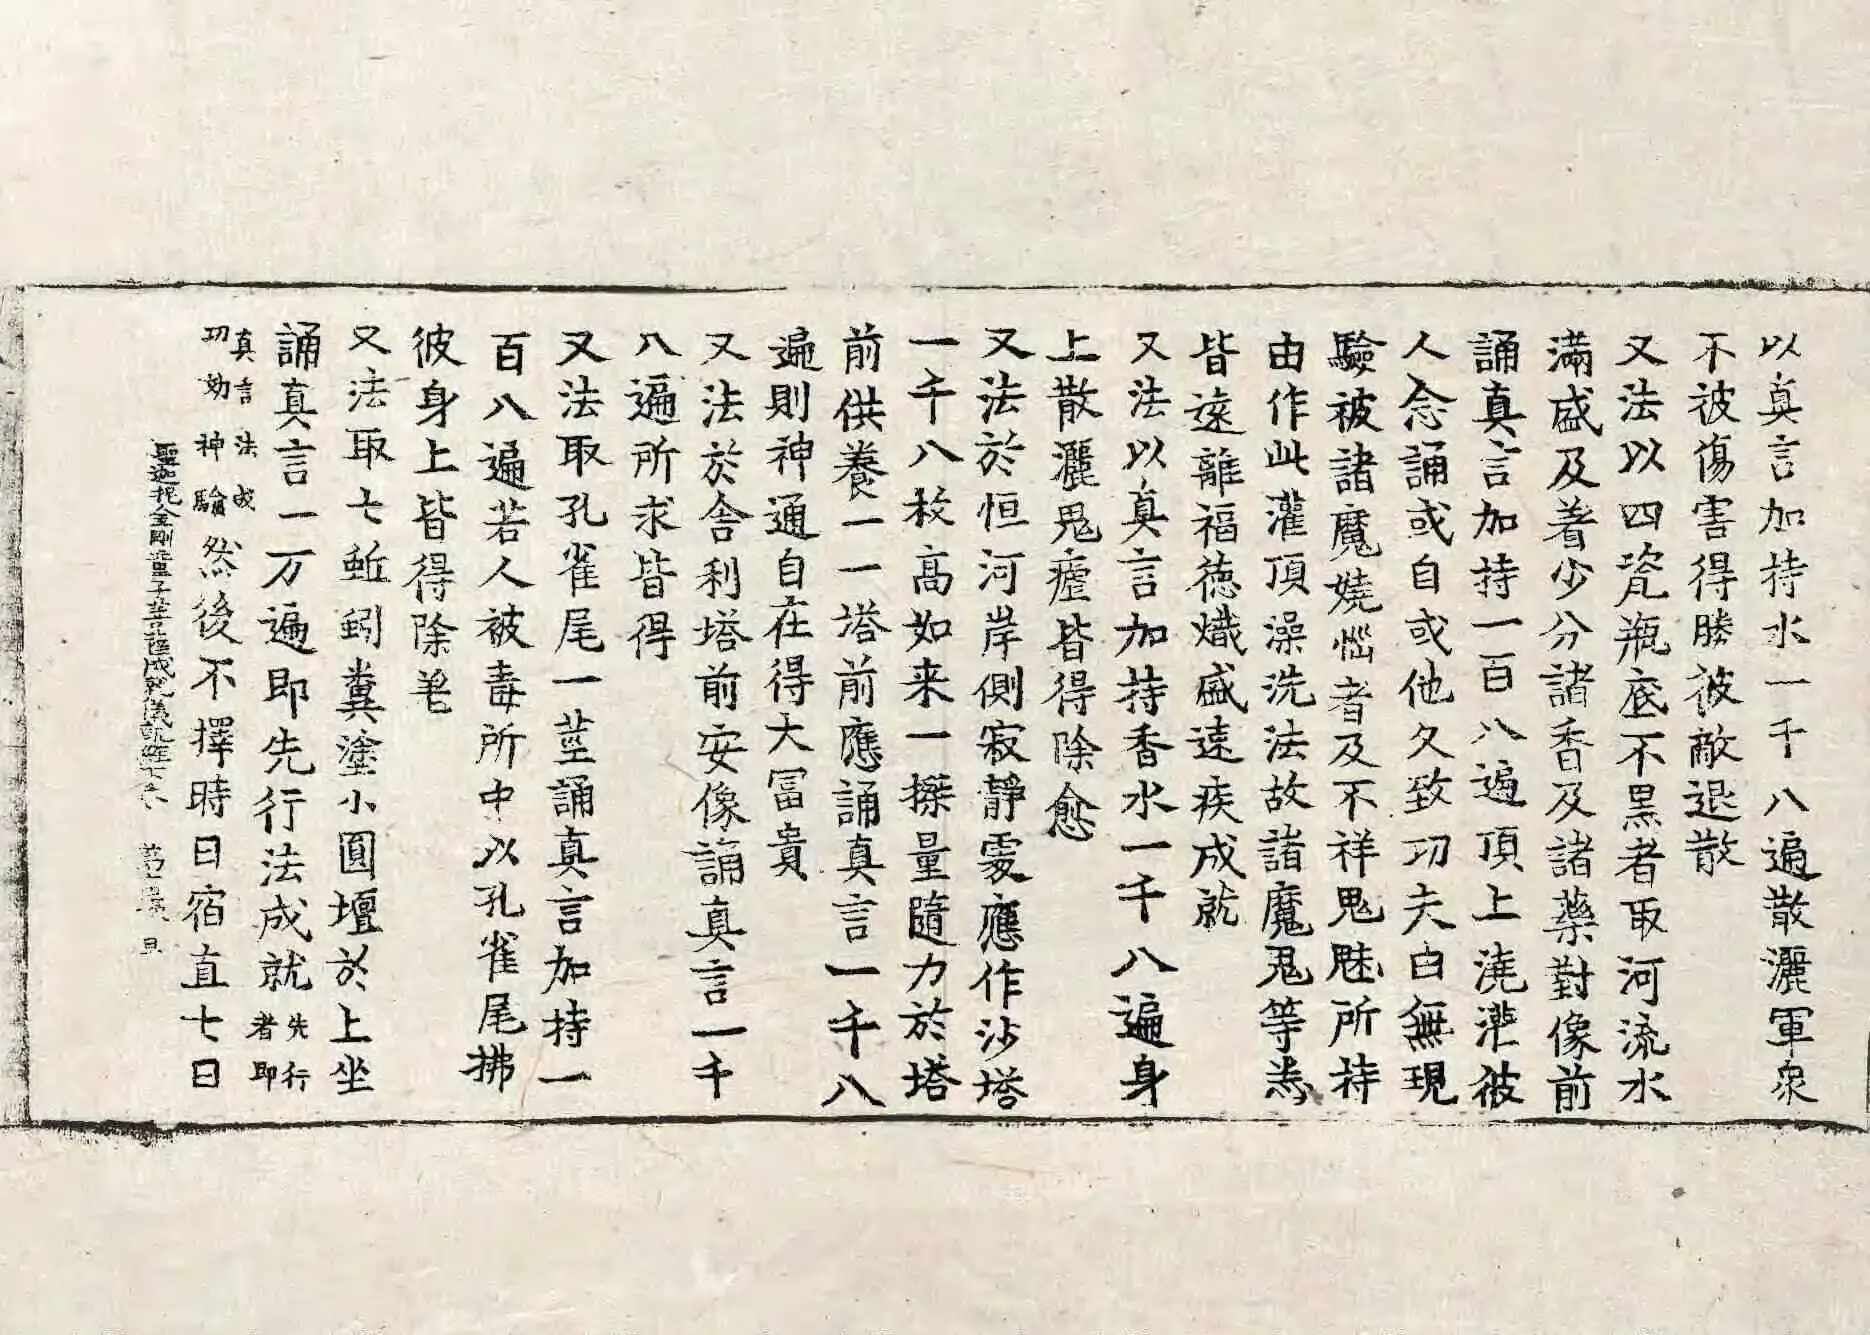 以真言加持水一千八遍散灑軍衆
不被傷害得勝彼敵退散
又法以四瓷瓶底不黑者取河流水
滿盛及著少分諸香及諸藥對像前
誦真言加持一百八遍頂上澆灌彼
人念誦或自或他久致功夫白無現
驗被諸魔嬈惱者及不祥鬼魅所持
由作此灌頂澡洗法故諸魔鬼等為
皆遠離福德熾盛速疾成就
又法以真言加持香水一千八遍身
上散灑鬼瘧皆得除愈
又法於恒河岸側寂靜處應作沙塔
一千八枚高如来一搩量隨力於塔
前供養一一塔前應誦真言一千八
遍則神通自在得大冨貴
又法於舍利塔前安像誦真言一千
八遍所求皆得
又法取孔雀尾一莖誦真言加持一
百八遍若人被毒所中以孔雀尾拂
彼身上皆得除差
又法取七蚯蚓糞塗小圓壇於上坐
誦真言一万遍即先行法成就先行者即
真言法成功効神驗然後不擇時日宿直七日
聖迦抳金剛童子菩薩成就儀軌經下卷